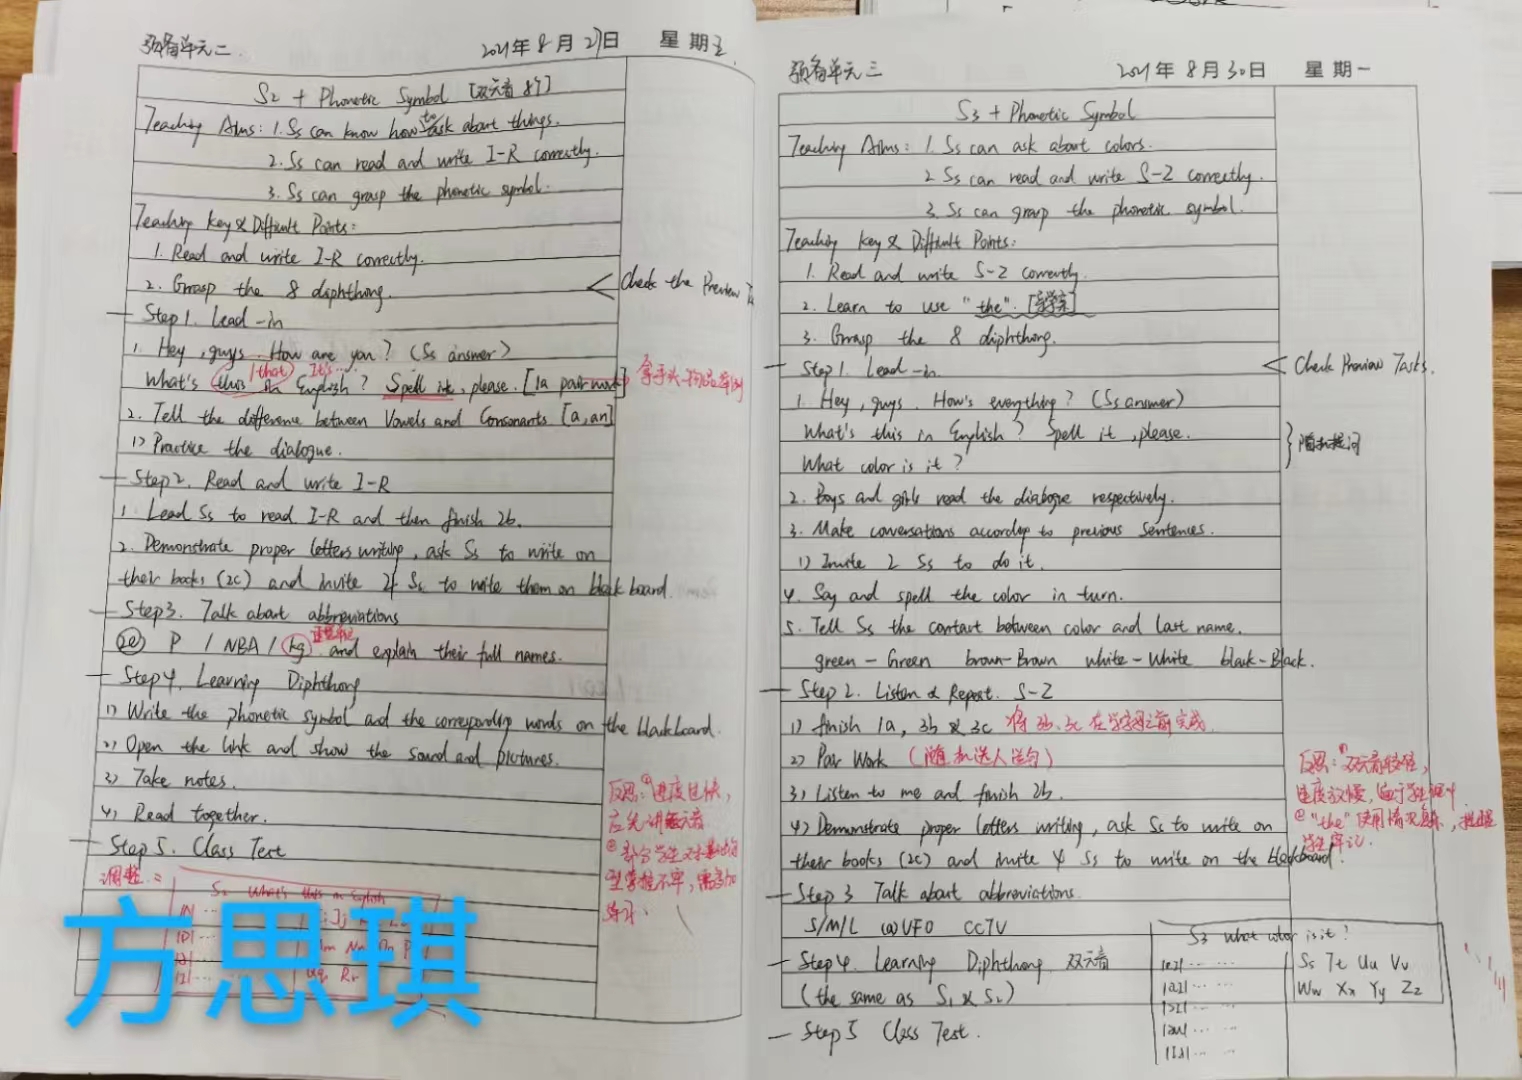 预备单元二
2021年8月27日 星期五
S2 + Phonetic Symbol [双元音 8个]
Teaching Aims: 1. Ss can know how to ask about things.
2. Ss can read and write I-R correctly.
3. Ss can grasp the phonetic symbol.
Teaching Key & Difficult Points:
1. Read and write I-R correctly.
2. Grasp the 8 diphthong.
Check the Preview
Step1. Lead-in
1. Hey, guys. How are you? (Ss answer)
/that It's...
What's this in English? Spell it, please. [1a pair work]
2. Tell the difference between Vowels and Consonants. [a, an]
1) Practice the dialogue.
Step2. Read and write I-R
1. Lead Ss to read I-R and then finish 2b.
2. Demonstrate proper letters writing, ask Ss to write on
their books (2c) and invite 4 Ss to write them on blackboard.
Step3. Talk about abbreviations
P / NBA / kg and explain their full names.
Step4. Learning Diphthong
1) Write the phonetic symbol and the corresponding words on the blackboard.
2) Open the link and show the sound and pictures.
3) Take notes.
4) Read together.
Step5. Class Test
反思:①进度过快,
②部分学生对
型掌握不牢,需多加
练习.
调整:
S2 What's this in English
方思琪
预备单元三
2021年8月30日 星期一
S3 + Phonetic Symbol
Teaching Aims: 1. Ss can ask about colors.
2. Ss can read and write S-Z correctly.
3. Ss can grasp the phonetic symbol.
Teaching Key & Difficult Points:
1. Read and write S-Z correctly.
2. Learn to use "the".
3. Grasp the 8 diphthong.
Step1. Lead-in
Check Preview Tasks.
1. Hey, guys. How's everything? (Ss answer)
What's this in English? Spell it, please.
随机提问
What color is it?
2. Boys and girls read the dialogue respectively.
3. Make conversations according to previous sentences.
1) Invite 2 Ss to do it.
4. Say and spell the color in turn.
5. Tell Ss the contact between color and last name.
green-Green brown-Brown white-White black-Black.
Step2. Listen & Repeat. S-Z
1) finish 1a, 3b & 3c 将3b、3c在学字母之前完成
2) Pair Work (随机选人造句)
3) Listen to me and finish 2b.
4) Demonstrate proper letters writing, ask Ss to write on
their books (2c) and invite 4 Ss to write on the blackboard.
反思:①双元音较难,
进度放慢,
②"the"使用情况
学生牢记.
Step3 Talk about abbreviations.
S/M/L UFO CCTV
Step4. Learning Diphthong 双元音
(the same as S1 & S2)
Step5 Class Test.
S3 What color is it?
Ss Tt Uu Vv
Ww Xx Yy Zz